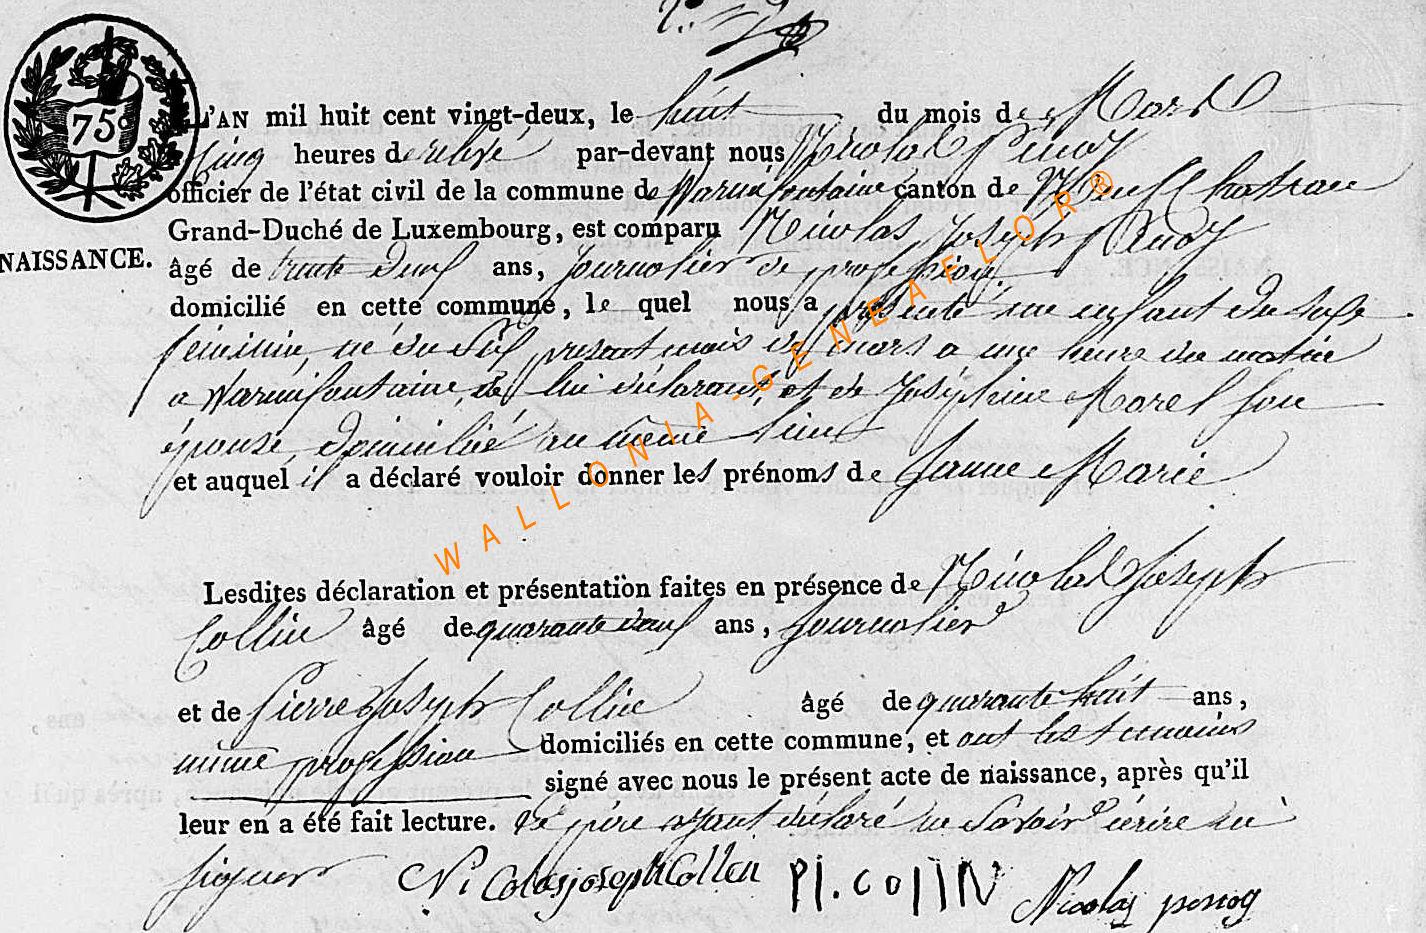 75c
L'AN mil huit cent vingt-deux, le huit du mois de Mars
cinq heures de relevé par-devant nous Nicolas Penoy
officier de l'état civil de la commune de Warmifontaine canton de Neufchateau
Grand-Duché de Luxembourg, est comparu Nicolas Joseph Penoy
NAISSANCE.
âgé de trente neuf ans, journalier de profession
domicilié en cette commune, le quel nous a présenté un enfant du sexe
féminin, né du sis présent mois de mars a une heure du matin
a Warmifontaine, de lui déclarant, et de Joséphine Morel son
épouse, domicilié au même lieu
et auquel il a déclaré vouloir donner les prénoms de Jeanne Marie
Lesdites déclaration et présentation faites en présence de Nicolas Joseph
Collin âgé de quarante neuf ans, journalier
et de Pierre Joseph Collin âgé de quarante huit ans,
même profession domiciliés en cette commune, et ont les temoins
signé avec nous le présent acte de naissance, après qu'il
leur en a été fait lecture. Le père ayant déclaré ne savoir écrire ni
signer Nicolas joseph Collen PI. COllIN Nicolas penoy
WALLONIA-GENEAFLOR®